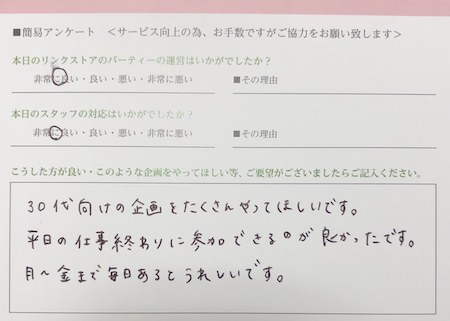 ■簡易アンケート ＜サービス向上の為、お手数ですがご協力をお願い致します＞
本日のリンクストアのパーティーの運営はいかがでしたか？
非常に良い・良い・悪い・非常に悪い ■その理由
本日のスタッフの対応はいかがでしたか？
非常に良い・良い・悪い・非常に悪い ■その理由
こうした方が良い・このような企画をやってほしい等、ご要望がございましたらご記入ください。
30代向けの企画をたくさんやってほしいです。
平日の仕事終わりに参加できるのが良かったです。
月〜金まで毎日あるとうれしいです。